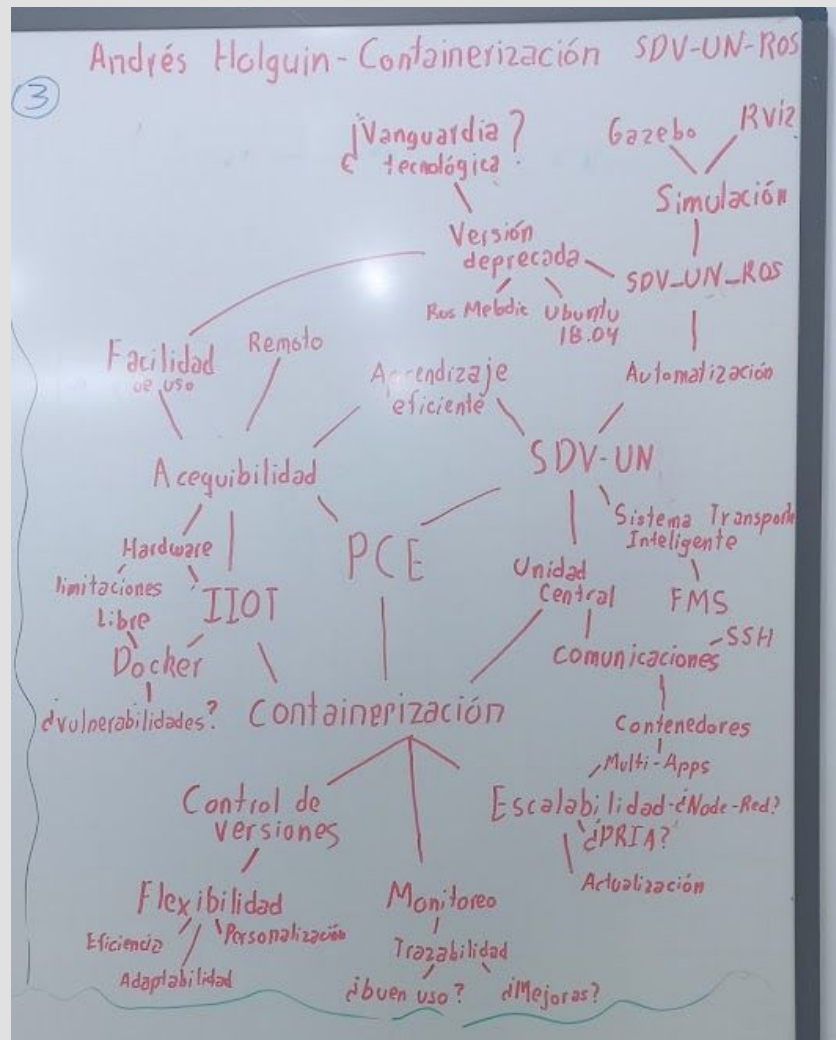 Andrés Holguin - Containerización SDV-UN-ROS
3
¿Vanguardia
tecnológica?
Gazebo
RViz
Simulación
Versión
deprecada
SDV_UN_ROS
Ros Melodic
Ubuntu
18.04
Facilidad
de uso
Remoto
Aprendizaje
eficiente
Automatización
Acequibilidad
SDV-UN
Sistema Transporte
Inteligente
Hardware
PCE
Unidad
Central
FMS
limitaciones
Libre
IIOT
SSH
Comunicaciones
Docker
¿vulnerabilidades?
Containerización
Contenedores
Multi-Apps
Control de
versiones
Escalabilidad-¿Node-Red?
¿PRIA?
Actualización
Flexibilidad
Monitoreo
Eficiencia
Personalización
Adaptabilidad
Trazabilidad
¿buen uso?
¿Mejoras?